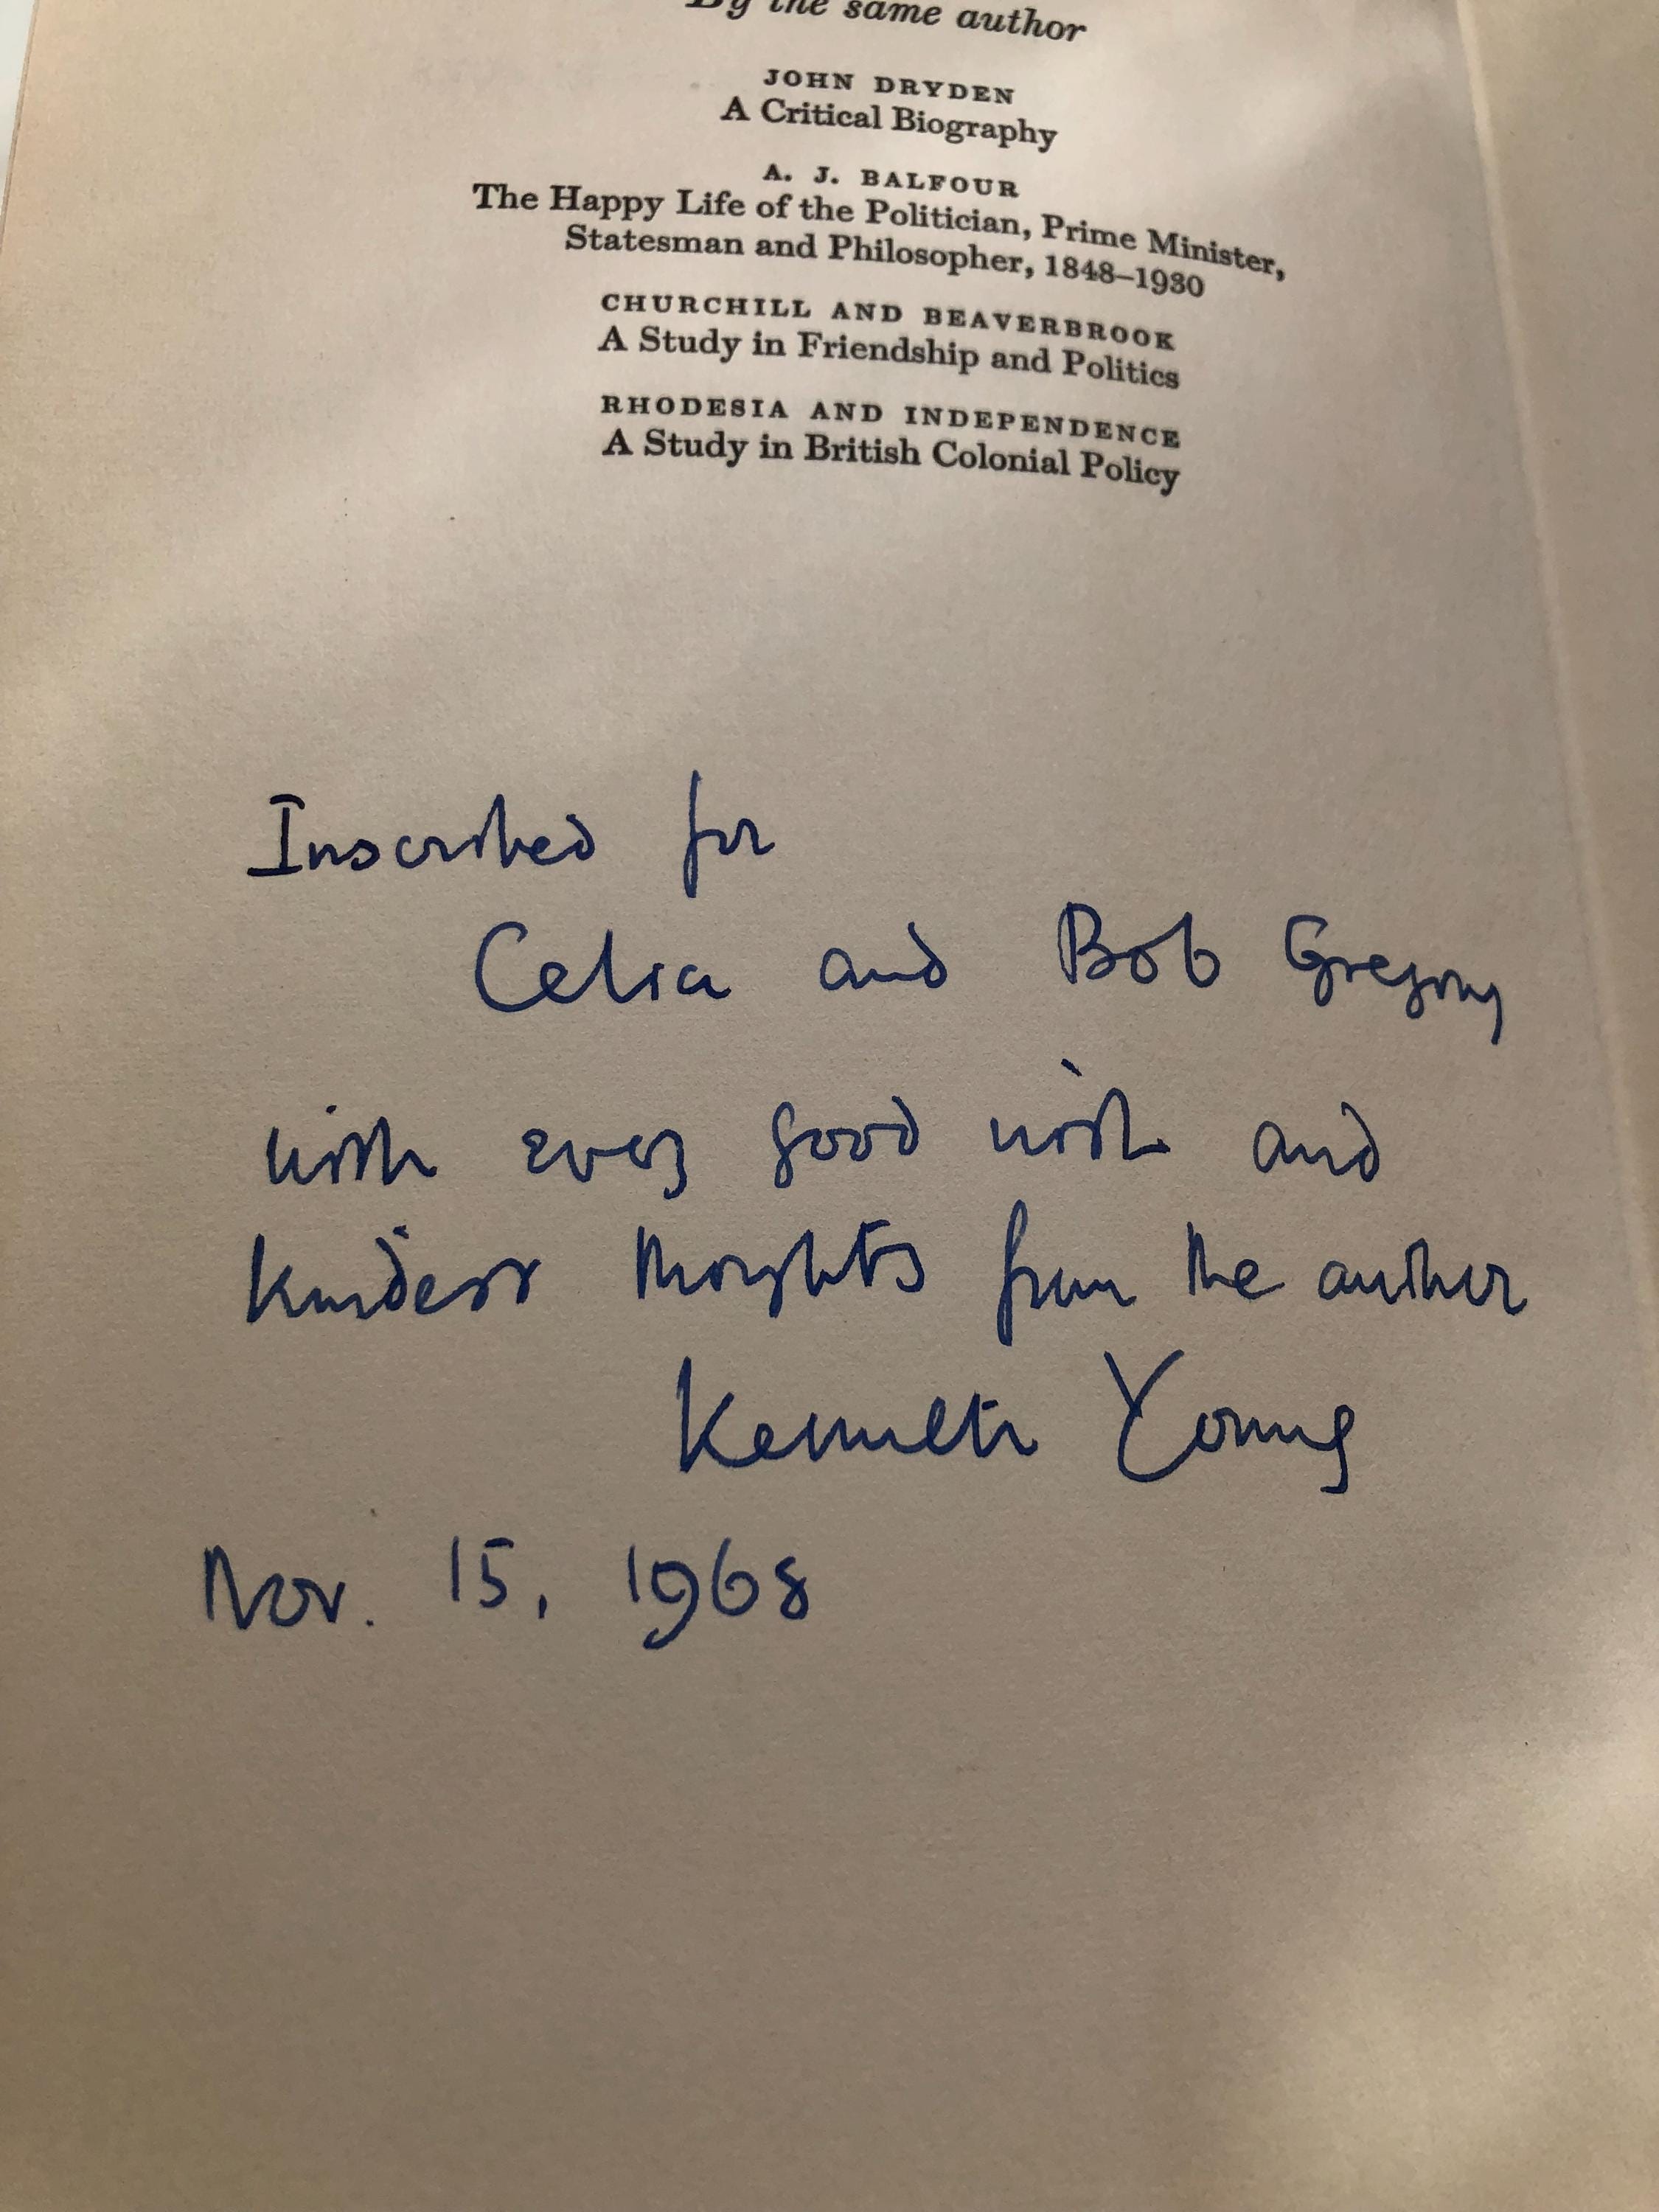 By the same author
JOHN DRYDEN
A Critical Biography
A. J. BALFOUR
The Happy Life of the Politician, Prime Minister,
Statesman and Philosopher, 1848–1930
CHURCHILL AND BEAVERBROOK
A Study in Friendship and Politics
RHODESIA AND INDEPENDENCE
A Study in British Colonial Policy
Inscribed for
Celia and Bob Gregory
with every good wish and
kindest thoughts from the author
Kenneth Young
Nov. 15, 1968